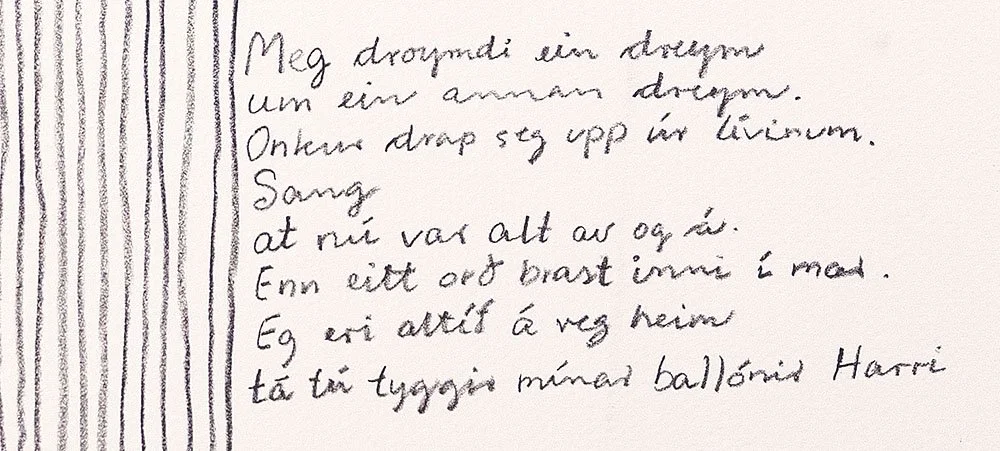 Meg droymdi ein dreym
um ein annan dreym.
Onkur drap seg upp úr lívinum.
Sang
at nú var alt av og á.
Enn eitt orð brast inni í mær.
Eg eri altíð á veg heim
tá tú tyggir mínar ballónir Harri